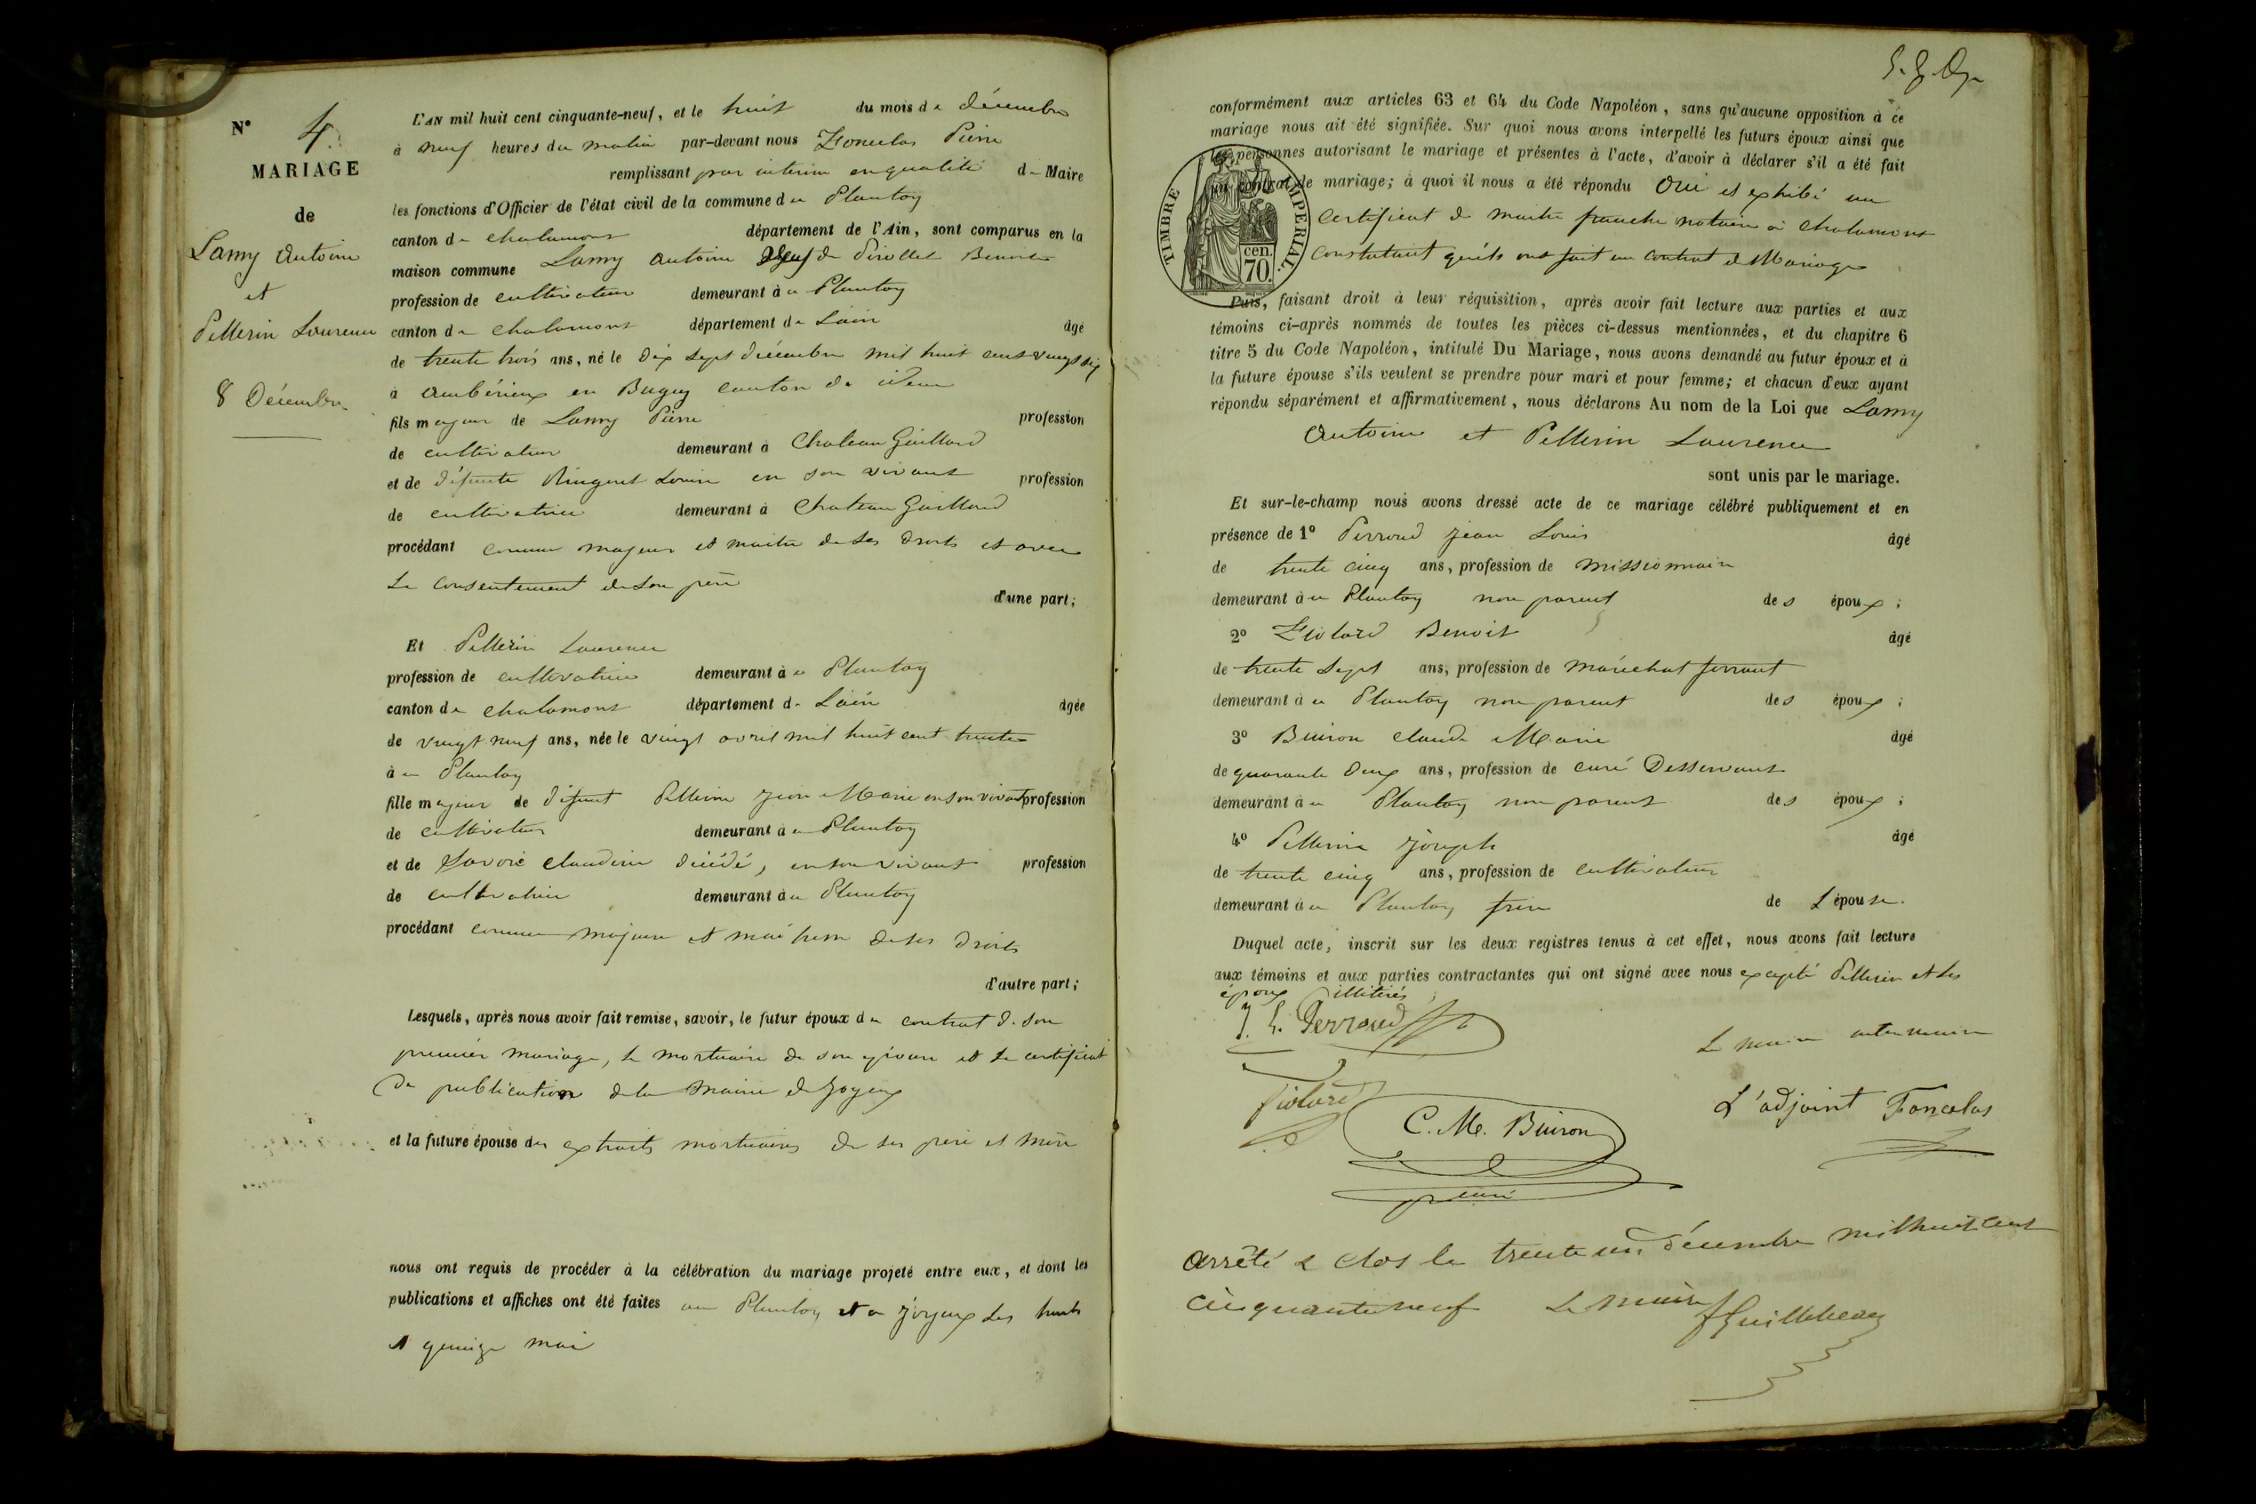 N° 4.
MARIAGE
de
Lamy Antoine
et
Pellerin Laurence
8 Décembre
L'AN mil huit cent cinquante-neuf, et le huit du mois de décembre
à neuf heures du matin par-devant nous Foncelas Pierre
remplissant par interim en qualité de Maire
les fonctions d'Officier de l'état civil de la commune du Plantay
canton de chalamont département de l'Ain, sont comparus en la
maison commune Lamy Antoine veuf de Benoite
profession de cultivateur demeurant à u Plantay
canton de chalamont département de Lain âgé
de trente trois ans, né le dix sept décembre mil huit cent vingt six
à ambérieux en Bugey canton de idem
fils majeur de Lamy Pierre profession
de cultivateur demeurant à Chateau Gaillard
et de défunte Louise en son vivant profession
de cultivatrice demeurant à Chateau Gaillard
procédant comme majeur et maitre de ses droits et avec
le consentement de son père
d'une part;
Et Pellerin Laurence
profession de cultivatrice demeurant à u Plantay
canton de chalamont département de Lain âgée
de vingt neuf ans, née le vingt avril mil huit cent trente
à u Plantay
fille majeur de défunt Pellerin Jean Marie en son vivant profession
de cultivateur demeurant à u Plantay
et de Savoie claudine décédé, en son vivant profession
de cultivatrice demeurant à u Plantay
procédant comme majeure et maitresse de ses droits
d'autre part;
Lesquels, après nous avoir fait remise, savoir, le futur époux du contrat de son
premier mariage, le mortuaire de son épouse et le certificat
de publication de la Mairie de Joyeux
et la future épouse des extraits mortuaires de ses père et mère
nous ont requis de procéder à la célébration du mariage projeté entre eux, et dont les
publications et affiches ont été faites au Plantay et a Joyeux les huit
et quinze mai
conformément aux articles 63 et 64 du Code Napoléon, sans qu'aucune opposition à ce
mariage nous ait été signifiée. Sur quoi nous avons interpellé les futurs époux ainsi que
les personnes autorisant le mariage et présentes à l'acte, d'avoir à déclarer s'il a été fait
un contrat de mariage; à quoi il nous a été répondu Oui et exhibé un
certificat de maitre franche notaire à chalamont
constatant qu'ils ont fait un contrat de Mariage
TIMBRE IMPERIAL.
cen.
70.
Puis, faisant droit à leur réquisition, après avoir fait lecture aux parties et aux
témoins ci-après nommés de toutes les pièces ci-dessus mentionnées, et du chapitre 6
titre 5 du Code Napoléon, intitulé Du Mariage, nous avons demandé au futur époux et à
la future épouse s'ils veulent se prendre pour mari et pour femme; et chacun d'eux ayant
répondu séparément et affirmativement, nous déclarons Au nom de la Loi que Lamy
Antoine et Pellerin Laurence
sont unis par le mariage.
Et sur-le-champ nous avons dressé acte de ce mariage célébré publiquement et en
présence de 1° Perroud Jean Louis âgé
de trente cinq ans, profession de missionnaire
demeurant à u Plantay non parent des époux;
2° Fiolard Benoit âgé
de trente sept ans, profession de maréchal ferrant
demeurant à u Plantay non parent des époux;
3° Buiron claude Marie âgé
de quarante deux ans, profession de curé Desservant
demeurant à u Plantay non parent des époux;
4° Pellerin Joseph âgé
de trente cinq ans, profession de cultivateur
demeurant à u Plantay frère de L'épouse.
Duquel acte, inscrit sur les deux registres tenus à cet effet, nous avons fait lecture
aux témoins et aux parties contractantes qui ont signé avec nous excepté Pellerin et les
époux illitérés
J. L. Perroud
Fiolard
C. M. Buiron
curé
L'adjoint Foncelas
Arrêté & clos le trente un décembre mil huit cent
cinquante neuf Le maire